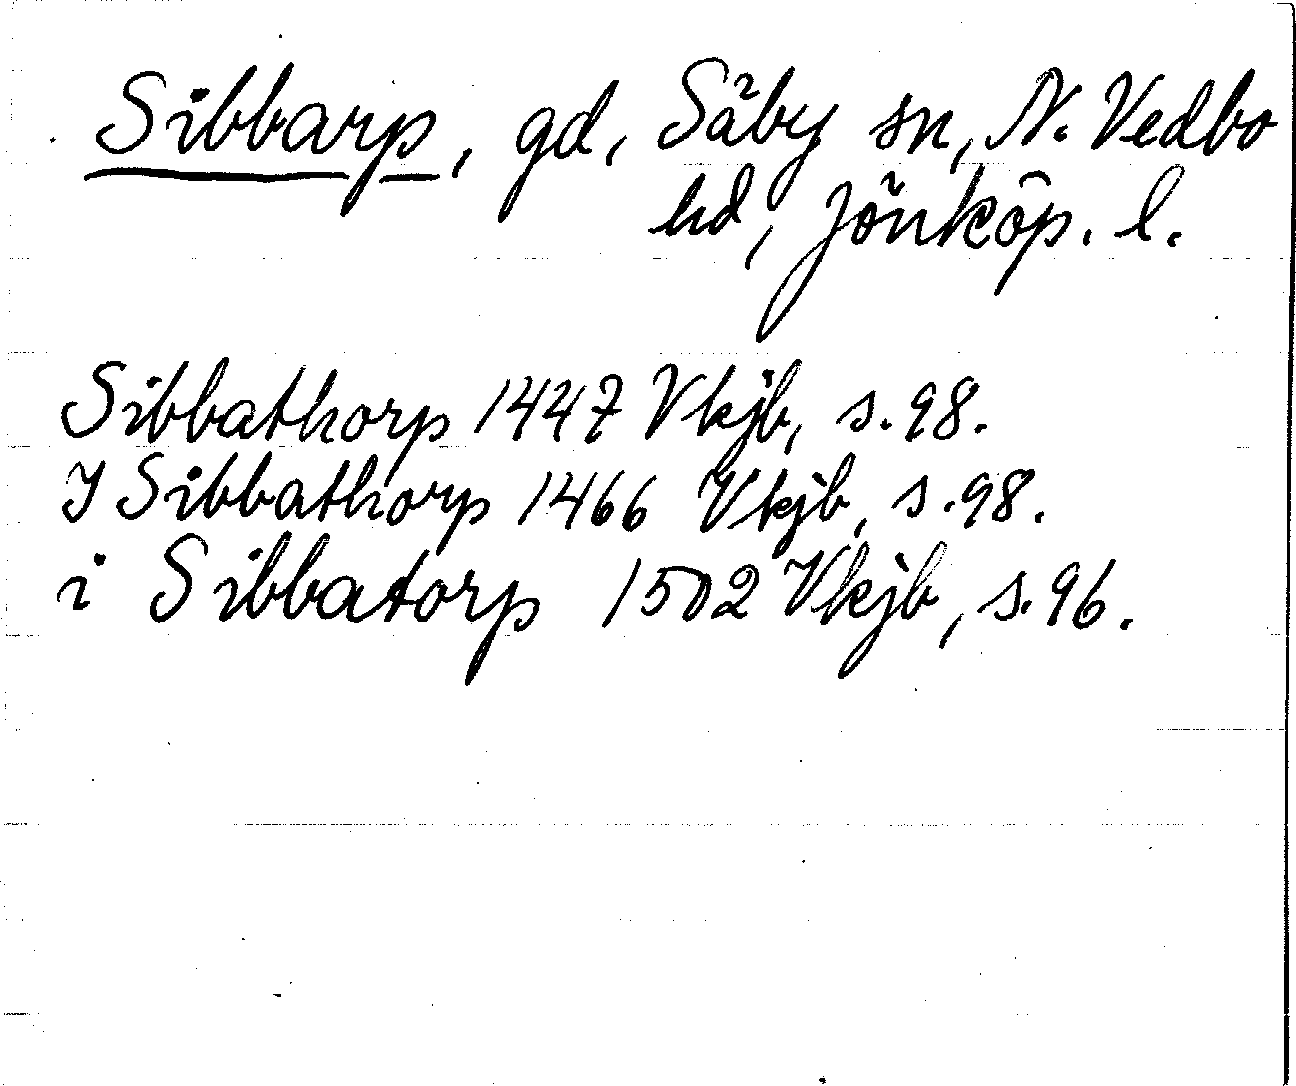 Sibbarp, gd, Säby sn, N. Vedbo
hd, Jönköp. l.
Sibbathorp 1447 Vkjb, s. 98.
J Sibbathorp 1466 Vkjb, s. 98.
i Sibbatorp 1502 Vkjb, s. 96.